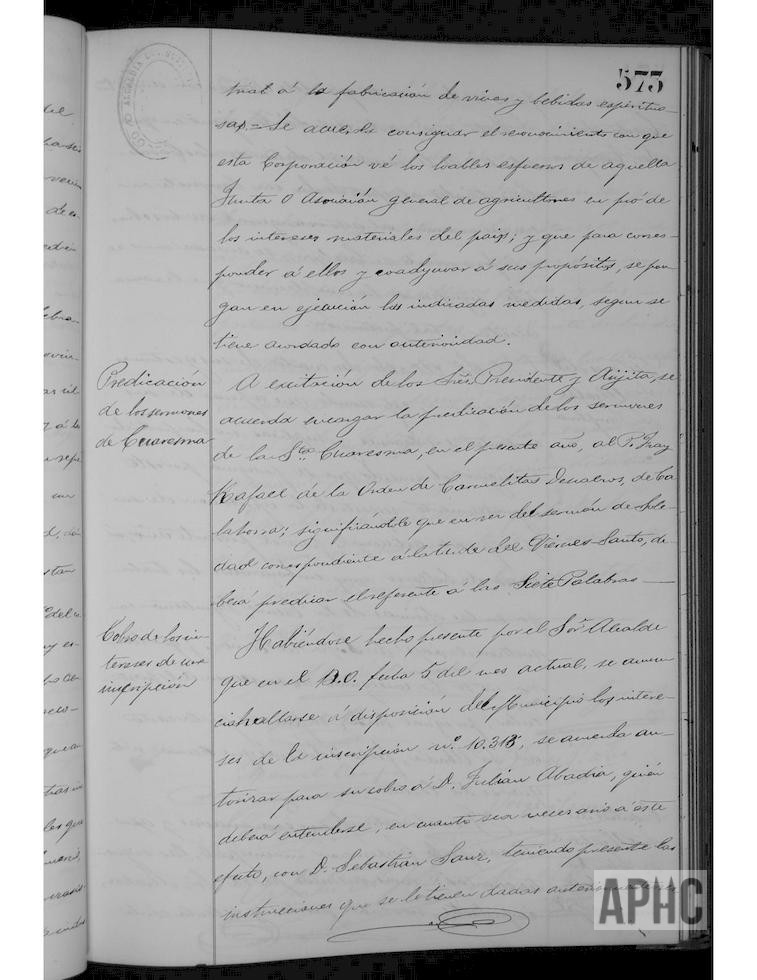 573
trial á la fabricación de vinos y bebidas espirituo-
sas.= Se acuerda consignar el reconocimiento con que
esta Corporación vé los loables esfuersos de aquella
Junta ó Asociación general de agricultores en pró de
los intereses materiales del pais; y que para corres-
ponder á ellos y coadyuvar á sus propósitos, se pon-
gan en ejecución las indicadas medidas, segun se
tiene acordado con anterioridad.
Predicación
de los sermones
de Cuaresma
A excitación de los Sres. Presidente y se
acuerda encargar la predicación de los sermones
de la Sta Cuaresma, en el presente año, al P. Fray
Rafael de la Orden de Carmelitas Descalzos, de Ca-
lahorra; significándole que en vez del sermón de Sole-
dad correspondiente á la tarde del Viernes Santo, de-
berá predicar el referente á las Siete Palabras
Cobro de los in-
tereses de una
inscripción
Habiéndose hecho presente por el Sor. Alcalde
que en el B.O. fecha 5 del mes actual, se anun-
cia hallarse á disposición del Municipio los intere-
ses de la inscripción nº. 10.315, se acuerda au-
torizar para su cobro á D. Julian Abadia, quién
deberá entenderse, en cuanto sea necesario á este
efecto, con D. Sebastian Sanz, teniendo presente las
instrucciones que se le tienen dadas
APHC